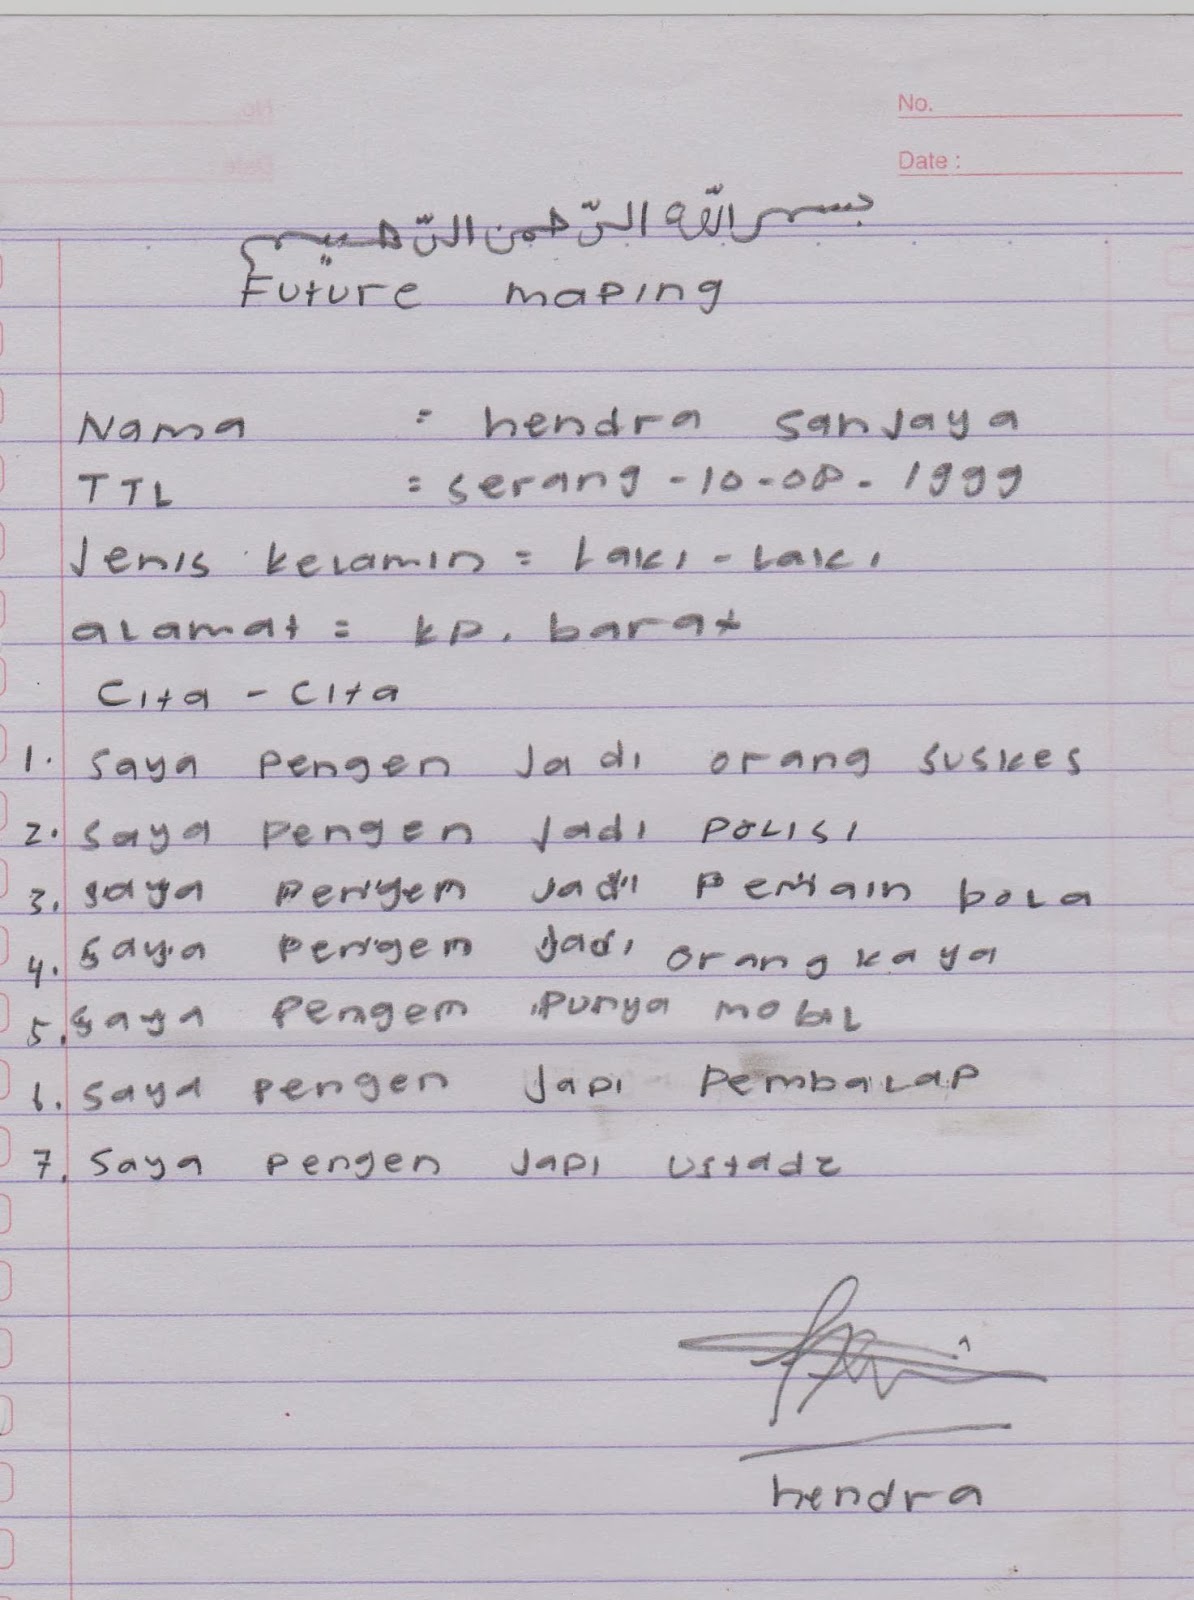 No.
Date :
بسم الله الرّحمن الرّحيم
Future maping
Nama : hendra sanjaya
TTL : serang - 10 - 08 - 1999
Jenis kelamin = Laki - Laki
alamat = kp. barat
Cita - Cita
1. saya pengen Jadi orang suskes
2. saya pengen Jadi polisi
3. saya pengen Jadi pemain bola
4. saya pengen Jadi orang kaya
5. saya pengem punya mobil
6. saya pengen Japi pembalap
7. saya pengen Japi ustadz
hendra